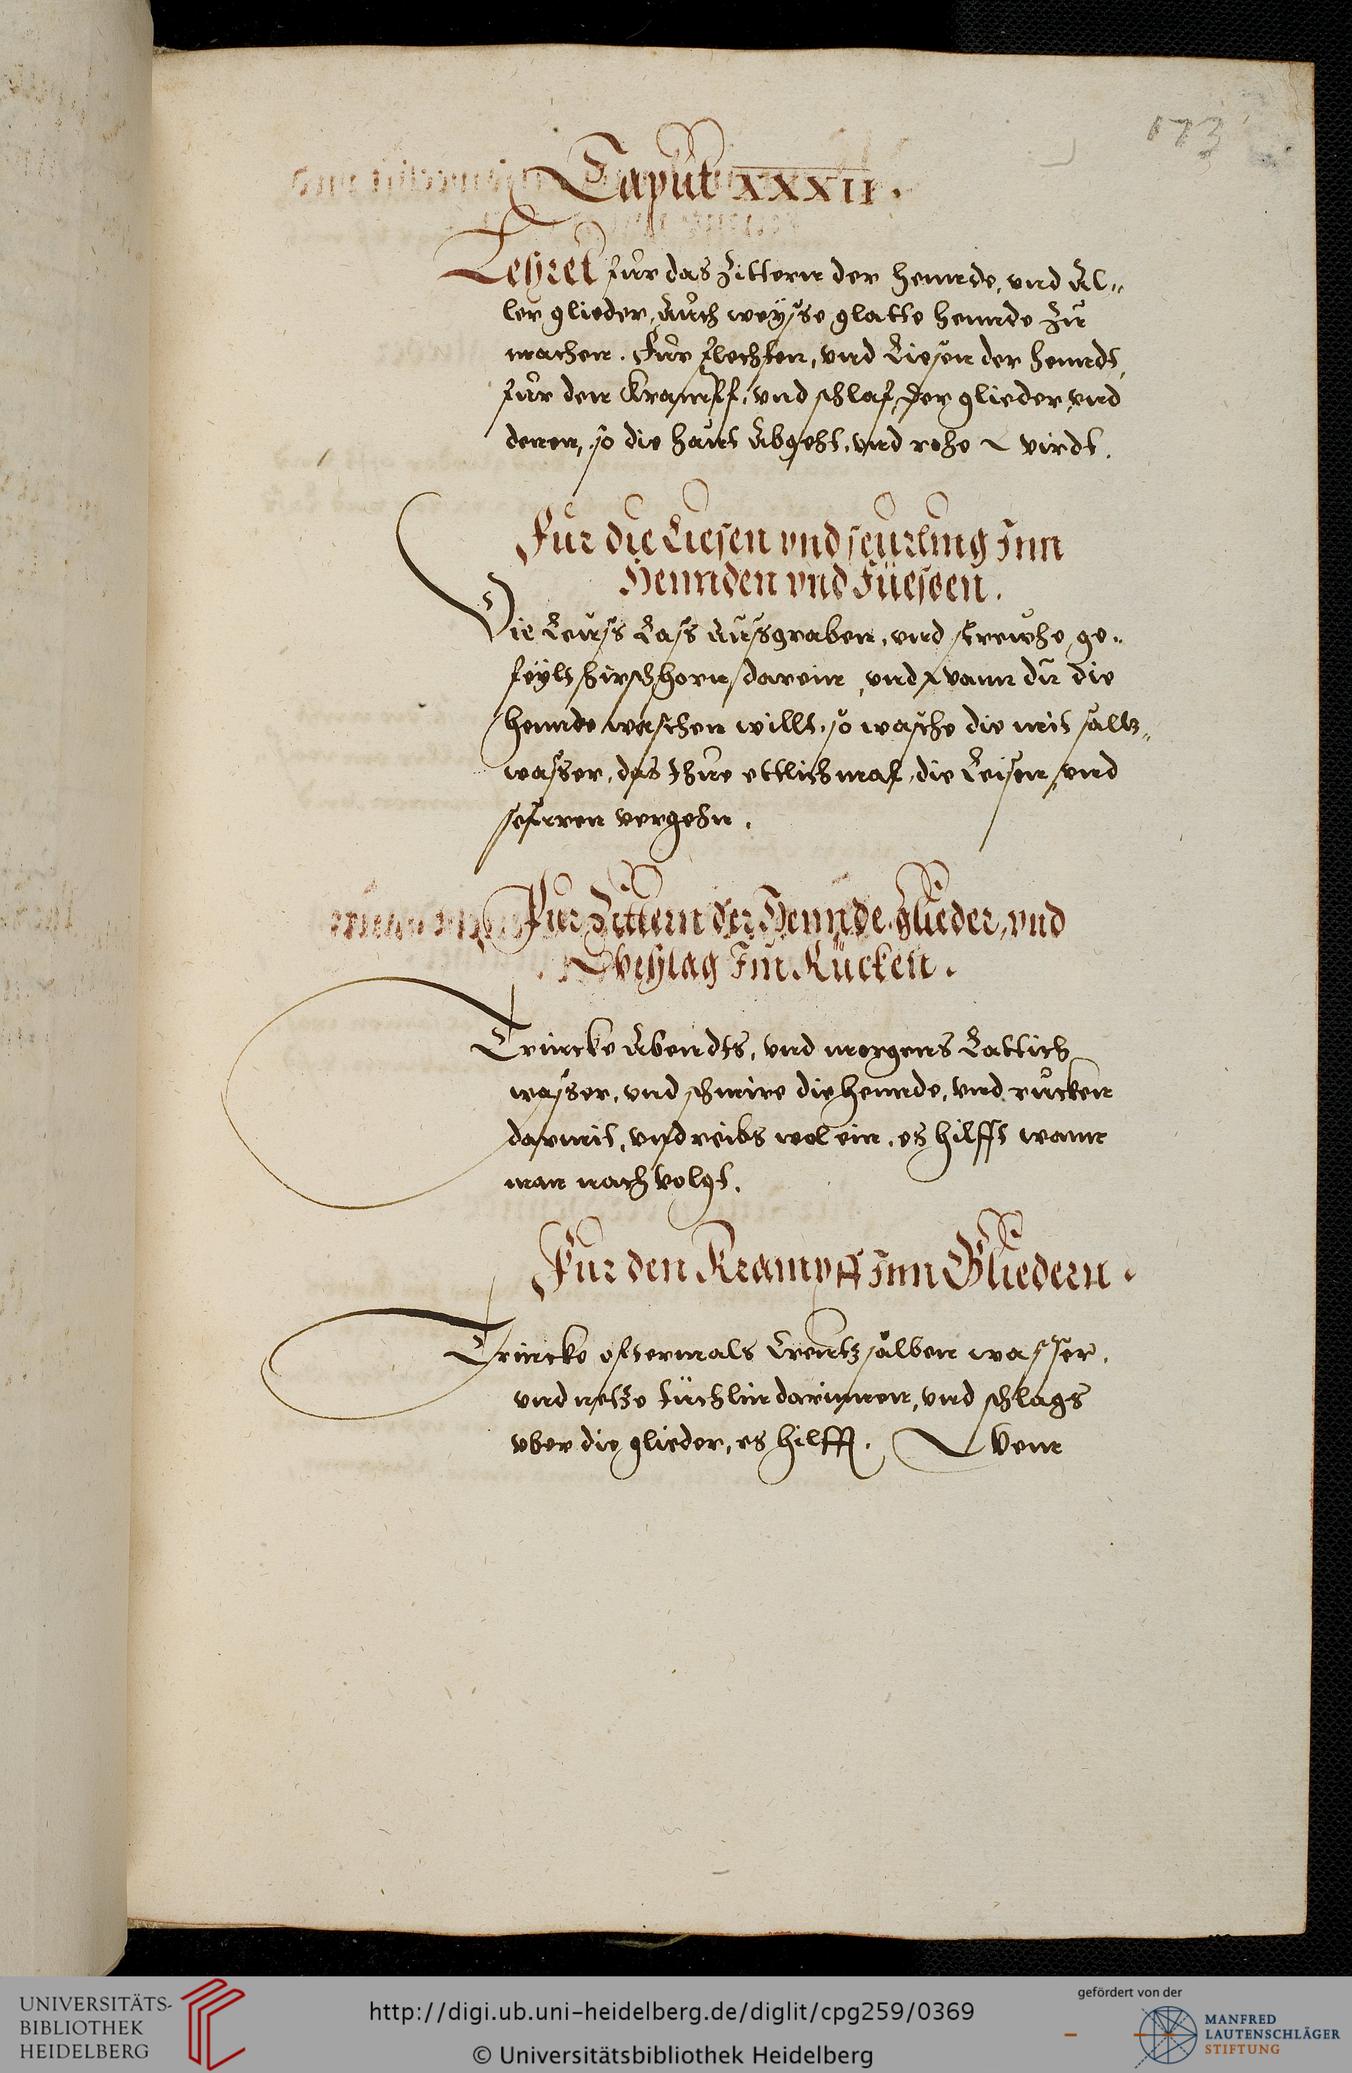 173
Caput XXXII.
Lehret fur das Zittern der Hennde, vnd Al„
ler glieder, Auch weysse glatte Hennde Zu
machen. Fur flechten, vnd Liesen der Henndt,
fur den Krampff, vnd schlaf der glieder, vnd
denen, so die haut Abgeht, vnd rohe Wirdt.
Fur die Liesen vnd seurling Inn
Hennden vnd Füessen.
Die Leuss Lass Aussgraben, vnd strewhe ge„
feylt Hirschhorn darein, vnd wann du die
hennde waschen willt, so wasche die mit saltz„
wasser, das thue ettlich mal, die Leisen, vnd
seuren vergehn.
Fur Zittern der Hennde, glieder, vnd
Wehtag Im Rücken.
Trincke Abendts, vnd morgens Lattich
wasser, vnd schmire die Hennde, vnd rucken
darmit, vnd reibs wol ein, es hilfft wann
man nach volgt.
Fur den Krampff Inn Gliedern.
Trincke offtermals Creutz salben wasser,
vnd netze tüchlin darinnen, vnd schlags
vber die glieder, es hilfft. Wem
UNIVERSITÄTS-
BIBLIOTHEK
HEIDELBERG
http://digi.ub.uni-heidelberg.de/diglit/cpg259/0369
© Universitätsbibliothek Heidelberg
gefördert von der
MANFRED
LAUTENSCHLÄGER
STIFTUNG